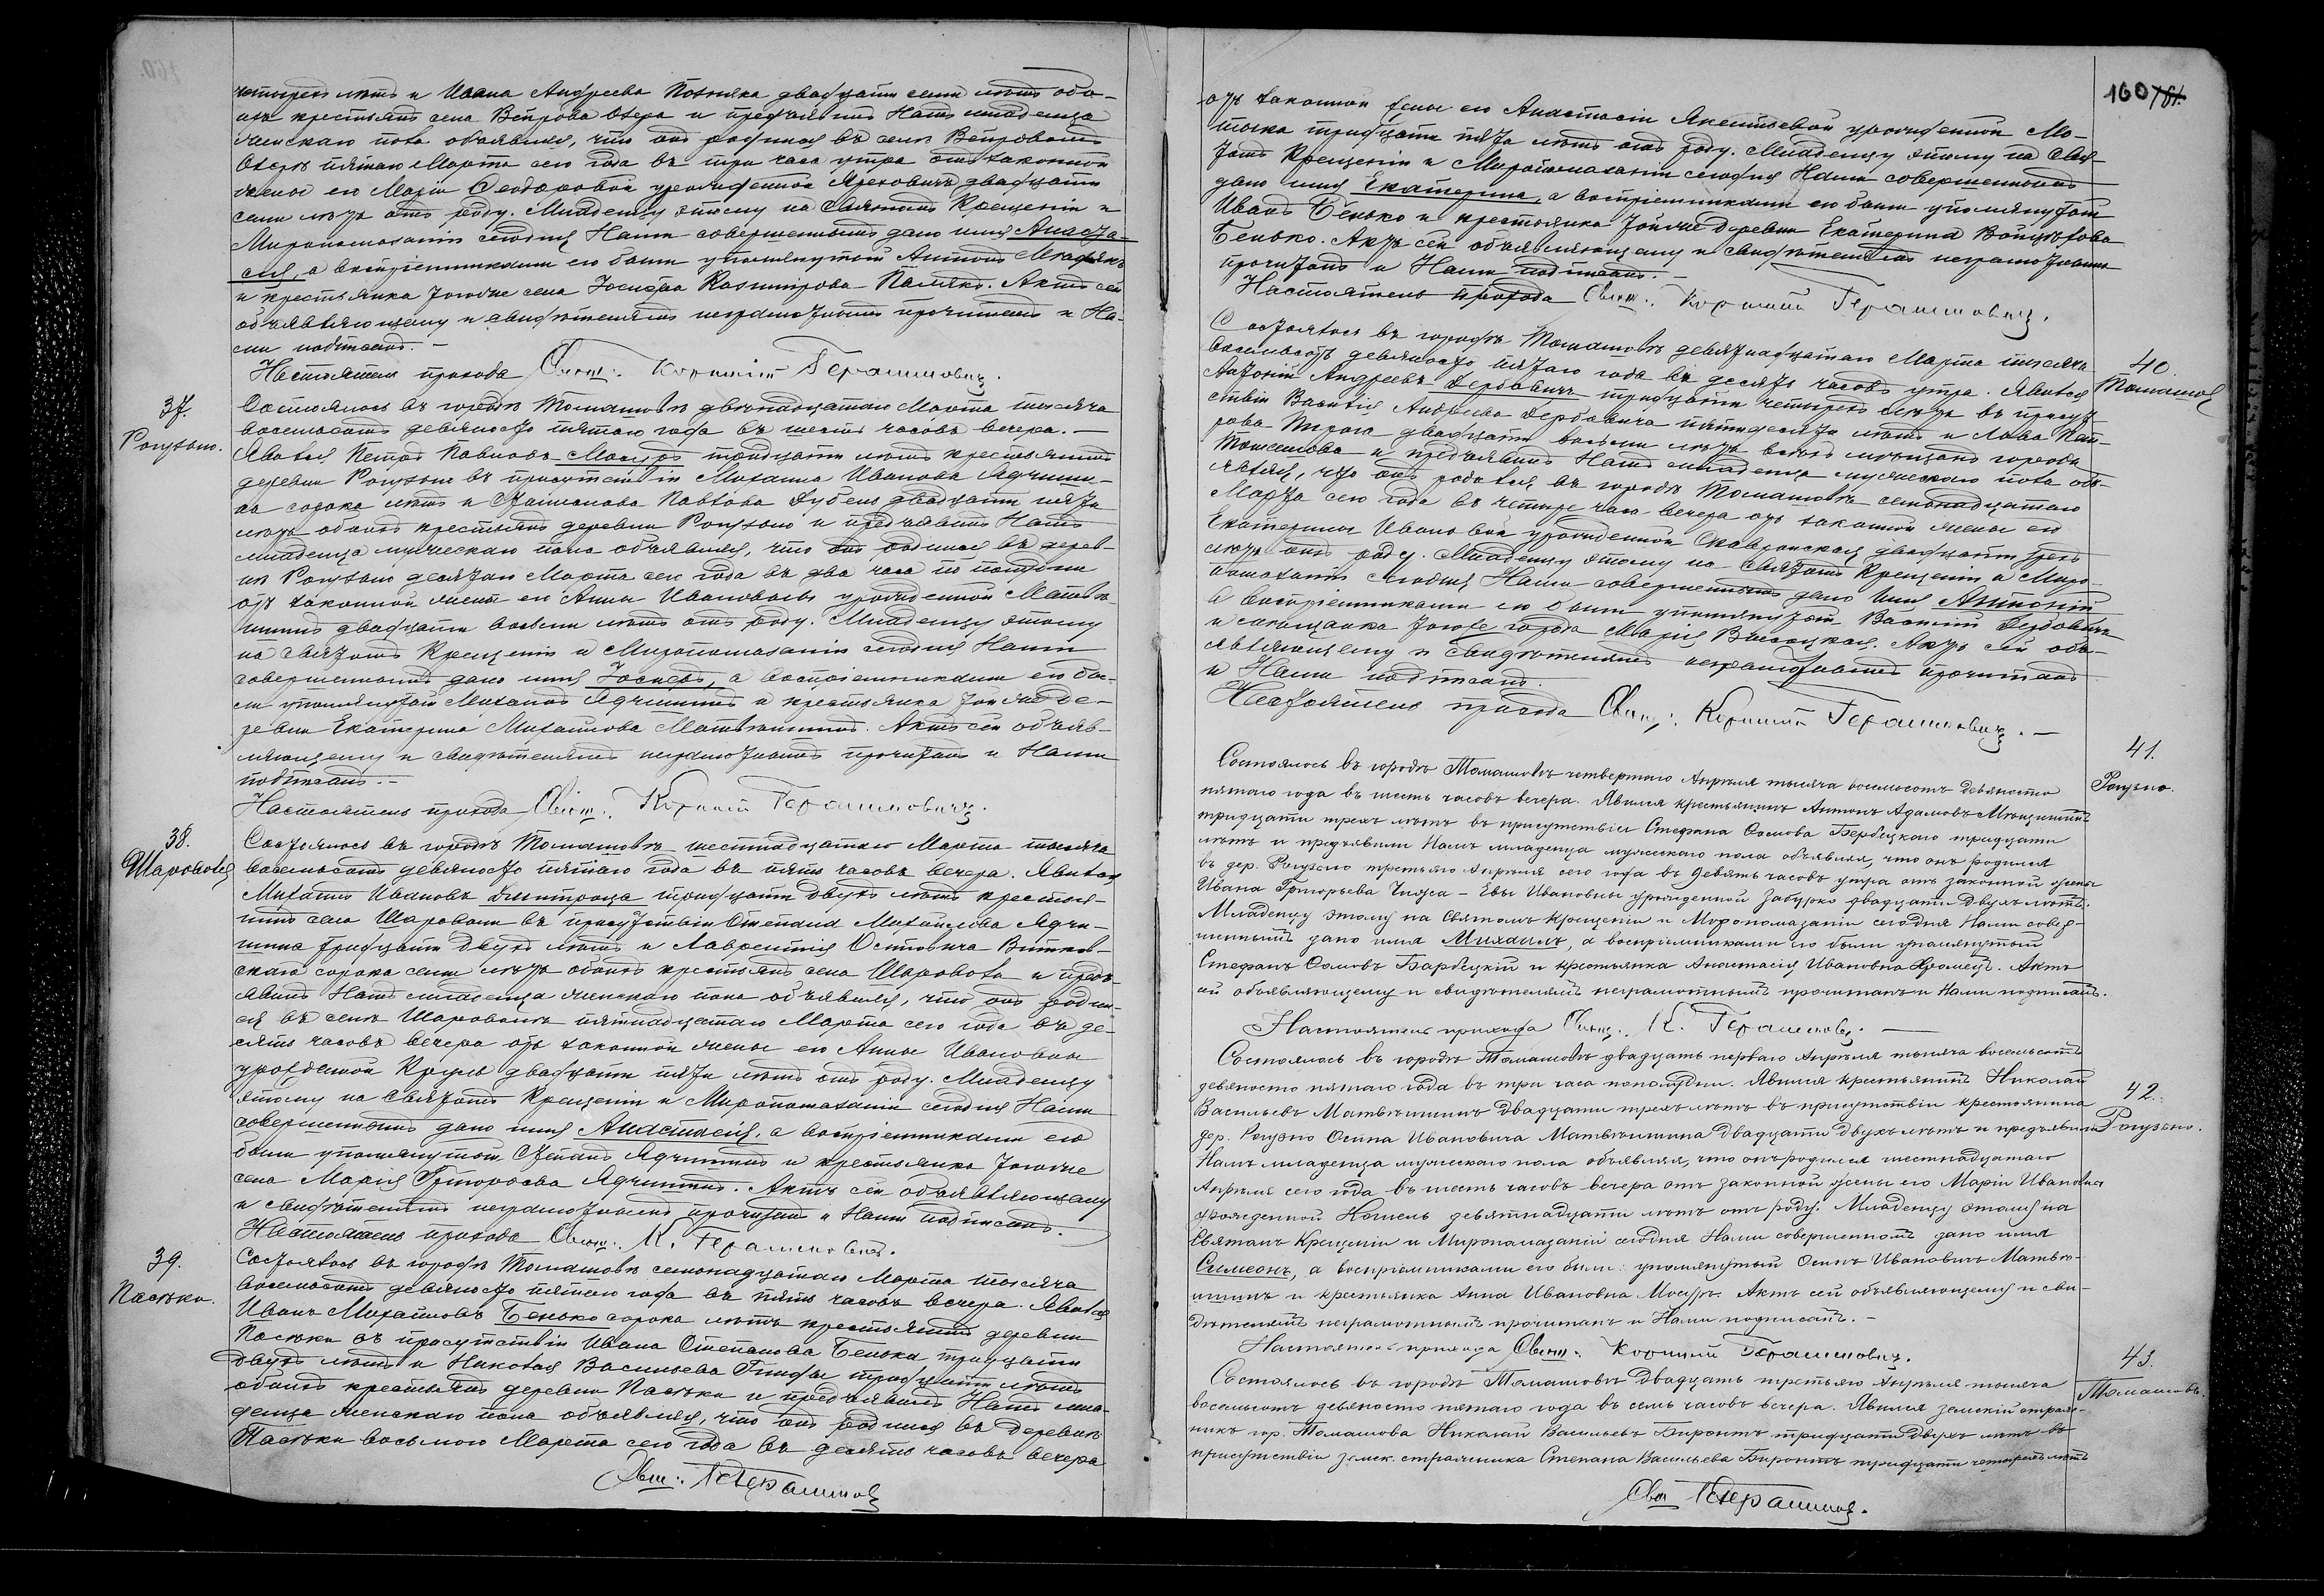 четырехъ лѣтъ и Ивана Андреева Позняка двадцати семи лѣтъ обо-
ихъ крестьянъ села Вепрова Озера и предъявилъ Намъ младенца
женскаго пола объявляя, что онъ родился въ селѣ Вепровомъ
Озерѣ пятаго Марта сего года въ три часа утра отъ законной
жены его Маріи Ѳеодоровой урожденной двадцати
семи лѣтъ отъ роду. Младенцу этому на Святомъ Крещеніи и
Миропомазаніи сегодня Нами совершенномъ дано имя Анаста-
сія, а воспріемниками его были упомянутый Антонъ
и крестьянка тойже села Казимірова Полякъ. Актъ сей
объявляющему и свидѣтелямъ неграмотнымъ прочитанъ и На-
ми подписанъ. —
Настоятель прихода Свящ: Корнилій Герасимовичъ.
37.
Рогузно.
Состоялось въ городѣ Томашовѣ двѣнадцатаго Марта тысяча
восемьсотъ девяносто пятаго года въ шесть часовъ вечера. —
Явился Петръ Павловъ Мосуръ тридцати лѣтъ крестьянинъ
деревни Рогузно въ присутствіи Михаила Иванова Ядчиши-
на сорока лѣтъ и Павлова двадцати пяти
лѣтъ обоихъ крестьянъ деревни Рогузно и предъявилъ Намъ
младенца мужескаго пола объявляя, что онъ родился въ дерев-
нѣ Рогузно десятаго Марта сего года въ два часа по полудни
отъ законной жены его Анны Ивановны урожденной Матвѣи-
шинъ двадцати восьми лѣтъ отъ роду. Младенцу этому
на Святомъ Крещеніи и Миропомазаніи сегодня Нами
совершенномъ дано имя Іосифъ, а воспріемниками его бы-
ли упомянутый Михаилъ Ядчишинъ и крестьянка той же де-
ревни Екатерина Михаилова Матвѣишинъ. Актъ сей объяв-
ляющему и свидѣтелямъ неграмотнымъ прочитанъ и Нами
подписанъ. —
Настоятель прихода Свящ: Корнилій Герасимовичъ.
38.
Шароволя
Состоялось въ городѣ Томашовѣ шестнадцатаго Марта тысяча
восемьсотъ девяносто пятаго года въ пять часовъ вечера. Явился
Михаилъ Ивановъ Дмитроца тридцати двухъ лѣтъ крестья-
нинъ села Шароволи въ присутствіи Степана Михайлова Ядчи-
шина тридцати двухъ лѣтъ и Лаврентія Осиповича Витков-
скаго сорока семи лѣтъ обоихъ крестьянъ села Шароволя и предъ-
явилъ Намъ младенца женскаго пола объявляя, что онъ родил-
ся въ селѣ Шароволѣ пятнадцатаго Марта сего года въ де-
сять часовъ вечера отъ законной жены его Анны Ивановны
урожденной двадцати пяти лѣтъ отъ роду. Младенцу
этому на Святомъ Крещеніи и Миропомазаніи сегодня Нами
совершенномъ дано имя Анастасія, а воспріемниками его
были упомянутый Степанъ Ядчишинъ и крестьянка тогоже
села Марія Григорьева Ядчишинъ. Актъ сей объявляющему
и свидѣтелямъ неграмотнымъ прочитанъ и Нами подписанъ.
Настоятель прихода Свящ: К. Герасимовичъ.
39.
Пасѣки.
Состоялось въ городѣ Томашовѣ семнадцатаго Марта тысяча
восемьсотъ девяносто пятаго года въ пять часовъ вечера. Явился
Иванъ Михайловъ Бенько сорока лѣтъ крестьянинъ деревни
Пасѣки въ присутствіи Ивана Степанова Бенька тридцати
двухъ лѣтъ и Николая Васильева тридцати лѣтъ
обоихъ крестьянъ деревни Пасѣки и предъявилъ Намъ мла-
денца женскаго пола объявляя, что онъ родился въ деревнѣ
Пасѣки восьмого Марта сего года въ десять часовъ вечера
Свящ: К. Герасимов
160
отъ законной жены его Анастасіи урожденной
тридцати пяти лѣтъ отъ роду. Младенцу этому на Свя-
томъ Крещеніи и Миропомазаніи сегодня Нами совершенномъ
дано имя Екатерина, а воспріемниками его были упомянутый
Иванъ Бенько и крестьянка тойже деревни Екатерина
Бенько. Актъ сей объявляющему и свидѣтелямъ неграмотнымъ
прочитанъ и Нами подписанъ. —
Настоятель прихода Свящ: Корнилій Герасимовичъ.
40.
Томашовъ
Состоялось въ городѣ Томашовѣ девятнадцатаго Марта тысяча
восемьсотъ девяносто пятаго года въ десять часовъ утра. Явился
Антоній Андреевъ Дербовичъ тридцати четырехъ лѣтъ въ присут-
ствіи Василія Андреева Дербовича пятидесяти лѣтъ и Льва
двадцати восьми лѣтъ всѣхъ мѣщанъ города
Томашова и предъявилъ Намъ младенца мужескаго пола объ-
являя, что онъ родился въ городѣ Томашовѣ семнадцатаго
Марта сего года въ четыре часа вечера отъ законной жены его
Екатерины Ивановой урожденной двадцати трехъ
лѣтъ отъ роду. Младенцу этому на Святомъ Крещеніи и Миро-
помазаніи сегодня Нами совершенномъ дано имя Антоній
а воспріемниками его были упомянутый Василій Дербовичъ
и мѣщанка тогоже города Марія Высоцкая. Актъ сей объ-
являющему и свидѣтелямъ неграмотнымъ прочитанъ
и Нами подписанъ.
Настоятель прихода Свящ: Корнилій Герасимовичъ. —
41.
Рогузно.
Состоялось въ городѣ Томашовѣ четвертаго Апрѣля тысяча восемьсотъ девяносто
пятаго года въ шесть часовъ вечера. Явился крестьянинъ Антонъ Адамовъ
тридцати трехъ лѣтъ въ присутствіи Стефана Ѳомова Барбецкаго тридцати
лѣтъ и предъявили Намъ младенца мужескаго пола объявляя, что онъ родился
въ дер. Рогузно третьяго Апрѣля сего года въ девять часовъ утра отъ законной жены
Ивана Григорьева — Евы Ивановны урожденной Забурко двадцати двухъ лѣтъ.
Младенцу этому на Святомъ Крещеніи и Миропомазаніи сегодня Нами совер-
шенномъ дано имя Михаилъ, а воспріемниками его были упомянутый
Стефанъ Ѳомовъ Барбецкій и крестьянка Анастасія Ивановна Хромецъ. Актъ
сей объявляющему и свидѣтелямъ неграмотнымъ прочитанъ и Нами подписанъ.
Настоятель прихода Свящ: К. Герасимовъ. —
42.
Рогузно.
Состоялось въ городѣ Томашовѣ двадцать перваго Апрѣля тысяча восемьсотъ
девяносто пятаго года въ три часа пополудни. Явился крестьянинъ Николай
Васильевъ Матвѣишинъ двадцати трехъ лѣтъ въ присутствіи крестьянина
дер. Рогузно Осипа Ивановича Матвѣишина двадцати двухъ лѣтъ и предъявили
Намъ младенца мужескаго пола объявляя, что онъ родился шестнадцатаго
Апрѣля сего года въ шесть часовъ вечера отъ законной жены его Маріи Ивановны
урожденной девятнадцати лѣтъ отъ роду. Младенцу этому на
Святомъ Крещеніи и Миропомазаніи сегодня Нами совершенномъ дано имя
Симеонъ, а воспріемниками его были: упомянутый Осипъ Ивановичъ Матвѣ-
ишинъ и крестьянка Анна Ивановна Мосуръ. Актъ сей объявляющему и сви-
дѣтелямъ неграмотнымъ прочитанъ и Нами подписанъ. —
Настоятель прихода Свящ: Корнилій Герасимовичъ.
43.
Томашовъ.
Состоялось въ городѣ Томашовѣ двадцать третьяго Апрѣля тысяча
восемьсотъ девяносто пятаго года въ семь часовъ вечера. Явился земскій страж-
никъ гор. Томашова Николай Васильевъ Биронтъ тридцати двухъ лѣтъ въ
присутствіи земск. стражника Степана Васильева Биронтъ тридцати четырехъ лѣтъ
Свящ К. Герасимов.